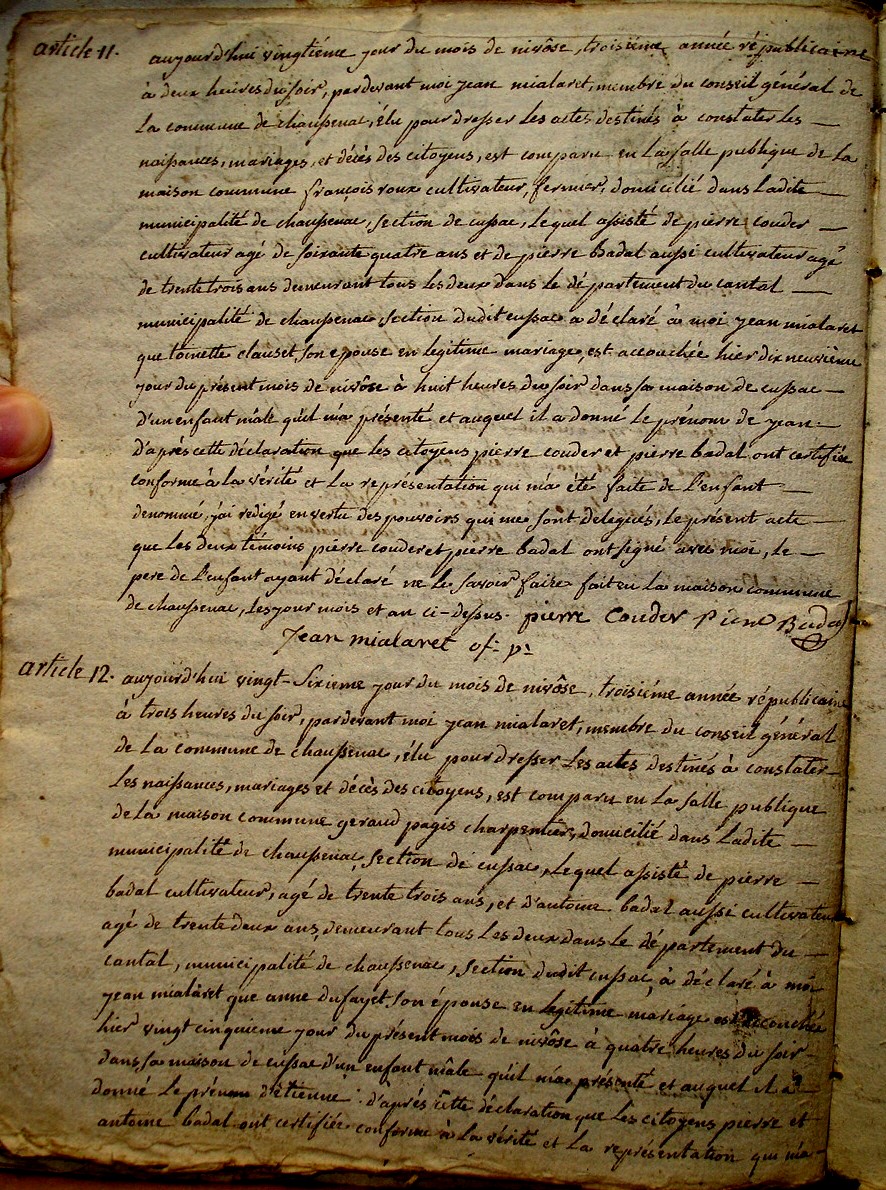 article 11. aujourd'hui vingtiéme jour du mois de nivôse, troisiéme année républicaine
à deux heures du soir, pardevant moi jean mialaret, membre du conseil général de
la commune de chaussenac, élu pour dresser les actes destinés à constater les —
naissances, mariages, et décès des citoyens, est comparu en la salle publique de la
maison commune françois roux cultivateur, fermier, domicilié dans ladite —
municipalité de chaussenac, section de cussac, lequel assisté de pierre couder —
cultivateur agé de soixante quatre ans et de pierre badal aussi cultivateur agé
de trente trois ans demeurant tous les deux dans le département du cantal —
municipalité de chaussenac, section dudit cussac a déclaré à moi jean mialaret
que toinette clauset, son epouse en legitime mariage, est accouchée hier dix neuviéme
jour du présent mois de nivôse à huit heures du soir dans sa maison de cussac —
d'un enfant mâle qu'il m'a présenté et auquel il a donné le prénom de jean —
d'après cette déclaration que les citoyens pierre couder et pierre badal ont certifiée
conforme à la vérité et la représentation qui m'a été faite de l'enfant —
denommé, j'ai redigé en vertu des pouvoirs qui me sont delegués, le présent acte —
que les deux témoins pierre couder et pierre badal ont signé avec moi, le —
pere de l'enfant ayant déclaré ne le savoir faire fait en la maison commune
de chaussenac, les jour mois et an ci-dessus. pierre Couder Piere Badal
Jean mialaret of: p:
article 12. aujourd'hui vingt-sixieme jour du mois de nivôse, troisiéme année républicaine
à trois heures du soir, pardevant moi jean mialaret, membre du conseil général
de la commune de chaussenac, élu pour dresser les actes destinés à constater
les naissances, mariages et décès des citoyens, est comparu en la salle publique
de la maison commune geraud pagis charpentier, domicilié dans ladite —
municipalité de chaussenac, section de cussac, lequel assisté de pierre —
badal cultivateur, agé de trente trois ans, et d'antoine badal aussi cultivateur
agé de trente deux ans, demeurant tous les deux dans le département du —
cantal, municipalité de chaussenac, section dudit cussac, à déclaré à moi
jean mialaret que anne dufayet son épouse en legitime mariage est accouchée
hier vingt cinquieme jour du présent mois de nivôse à quatre heures du soir
dans sa maison de cussac d'un enfant mâle qu'il m'a présenté et auquel il a
donné le prénom d'étienne: d'après cette déclaration que les citoyens pierre et
antoine badal ont certifiée conforme à la vérité et la représentation qui m'a